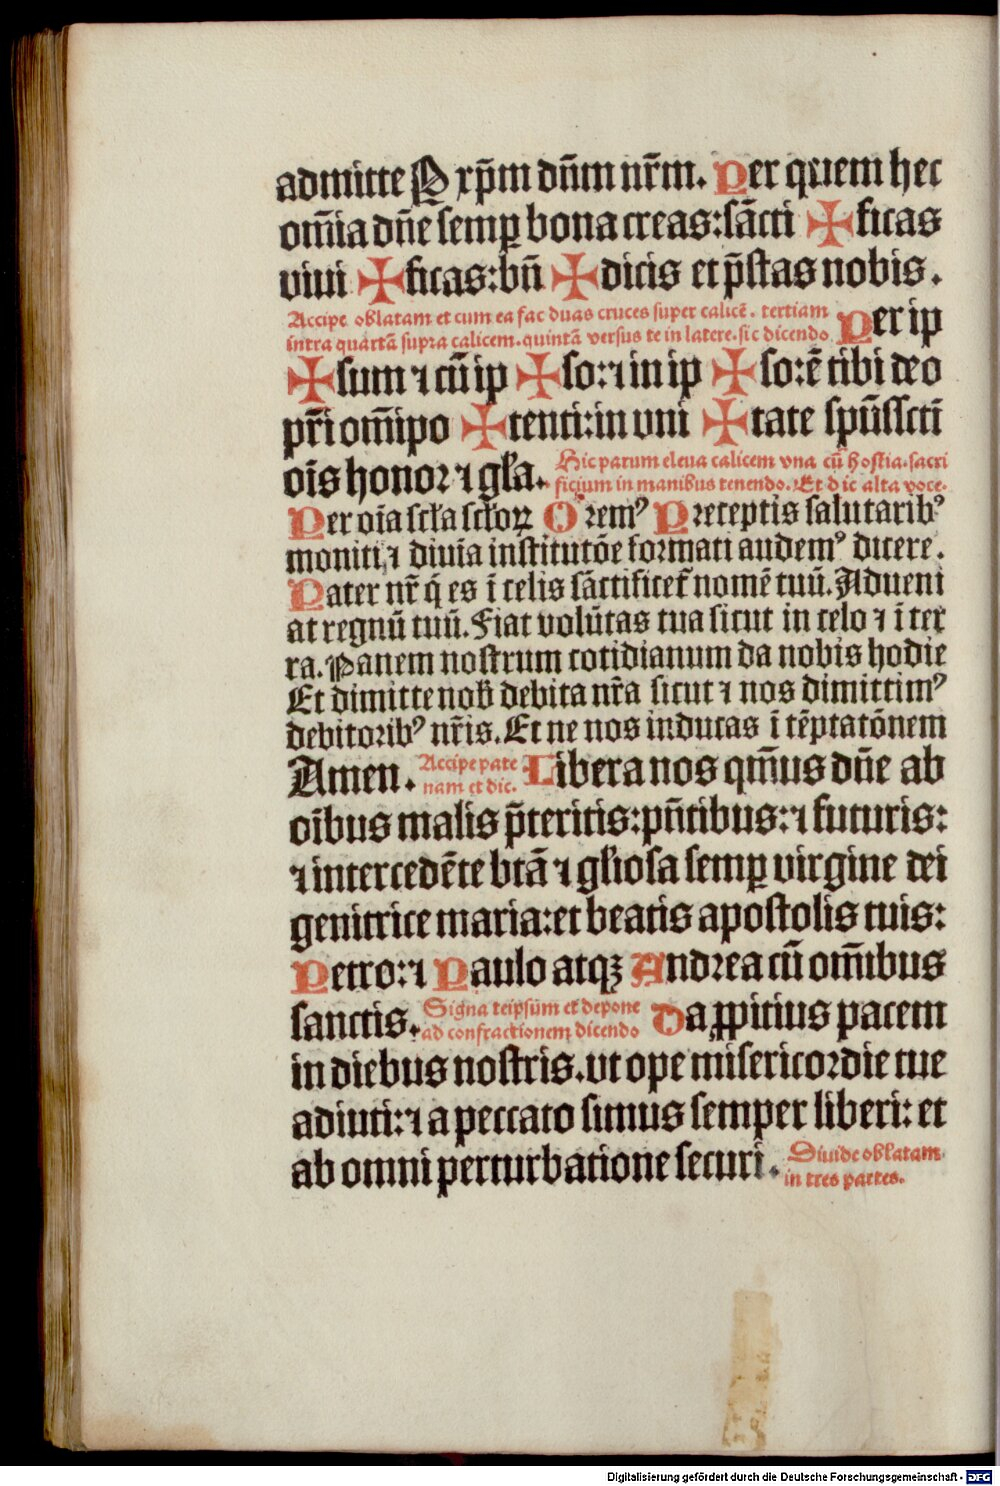 admitte P xp̄m dn̄m nr̄m. Per quem hec
om̄ia dn̄e semꝑ bona creas: sācti ✠ ficas
viui ✠ ficas: bn̄ ✠ dicis et p̄stas nobis.
Accipe oblatam et cum ea fac duas cruces super calicē. tertiam
intra quartā supra calicem. quintā versus te in latere. sic dicendo Per ip
✠ sum ⁊ cū ip ✠ so: ⁊ in ip ✠ so: ē tibi deo
pr̄i om̄ipo ✠ tenti: in vni ✠ tate spūssctī
oīs honor ⁊ gl̄a. Hic parum eleua calicem vna cū hostia. sacri
ficium in manibus tenendo. Et dic alta voce.
Per oīa scl̄a scl̄oꝝ Oremꝰ Preceptis salutaribꝰ
moniti ⁊ diuīa institutōe formati audemꝰ dicere.
Pater nr̄ q̄ es ī celis sāctificet᷑ nomē tuū. Adueni
at regnū tuū. Fiat volūtas tua sicut in celo ⁊ ī ter
ra. Panem nostrum cotidianum da nobis hodie
Et dimitte nob̄ debita nr̄a sicut ⁊ nos dimittimꝰ
debitoribꝰ nr̄is. Et ne nos inducas ī tēptatōnem
Amen. Accipe pate
nam et dic. Libera nos qm̄us dn̄e ab
oībus malis p̄teritis: pn̄tibus: ⁊ futuris:
⁊ intercedēte btā ⁊ gl̄iosa semꝑ virgine dei
genitrice maria: et beatis apostolis tuis:
Petro: ⁊ Paulo atqꝫ Andrea cū om̄ibus
sanctis. Signa teipsūm et depone
ad confractionem dicendo Da ꝓpitius pacem
in diebus nostris. vt ope misericordie tue
adiuti: ⁊ a peccato simus semper liberi: et
ab omni perturbatione securi. Diuide oblatam
in tres partes.
Digitalisierung gefördert durch die Deutsche Forschungsgemeinschaft - DFG